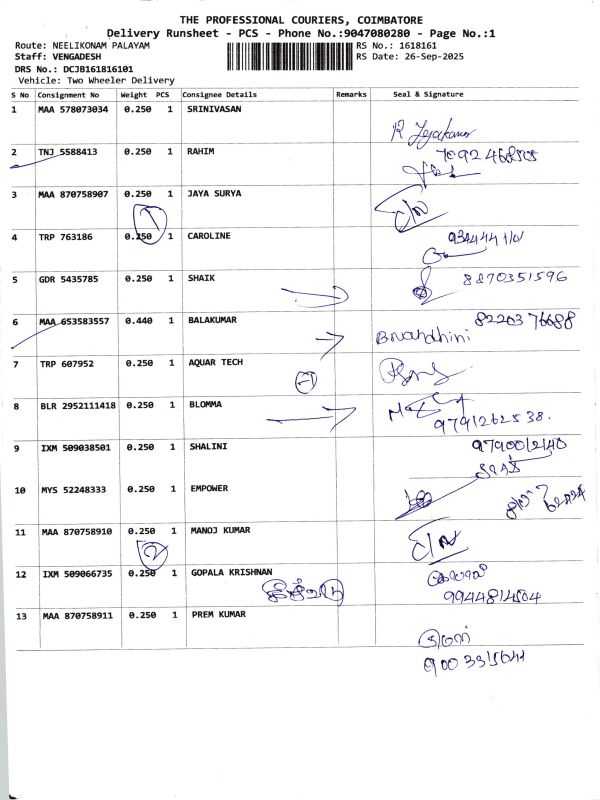 THE PROFESSIONAL COURIERS, COIMBATORE
Delivery Runsheet - PCS - Phone No.:9047080280 - Page No.:1
Route: NEELIKONAM PALAYAM
RS No.: 1618161
Staff: VENGADESH
RS Date: 26-Sep-2025
DRS No.: DCJB161816101
Vehicle: Two Wheeler Delivery
S No Consignment No Weight PCS Consignee Details Remarks Seal & Signature
1 MAA 578073034 0.250 1 SRINIVASAN
2 TNJ 5588413 0.250 1 RAHIM
3 MAA 870758907 0.250 1 JAYA SURYA
1
4 TRP 763186 0.250 1 CAROLINE
5 GDR 5435785 0.250 1 SHAIK
8870351596
6 MAA 653583557 0.440 1 BALAKUMAR
8220376688
7 TRP 607952 0.250 1 AQUAR TECH
8 BLR 2952111418 0.250 1 BLOMMA
9791262538.
9 IXM 509038501 0.250 1 SHALINI
9790012140
10 MYS 52248333 0.250 1 EMPOWER
11 MAA 870758910 0.250 1 MANOJ KUMAR
2
12 IXM 509066735 0.250 1 GOPALA KRISHNAN
9944814504
13 MAA 870758911 0.250 1 PREM KUMAR